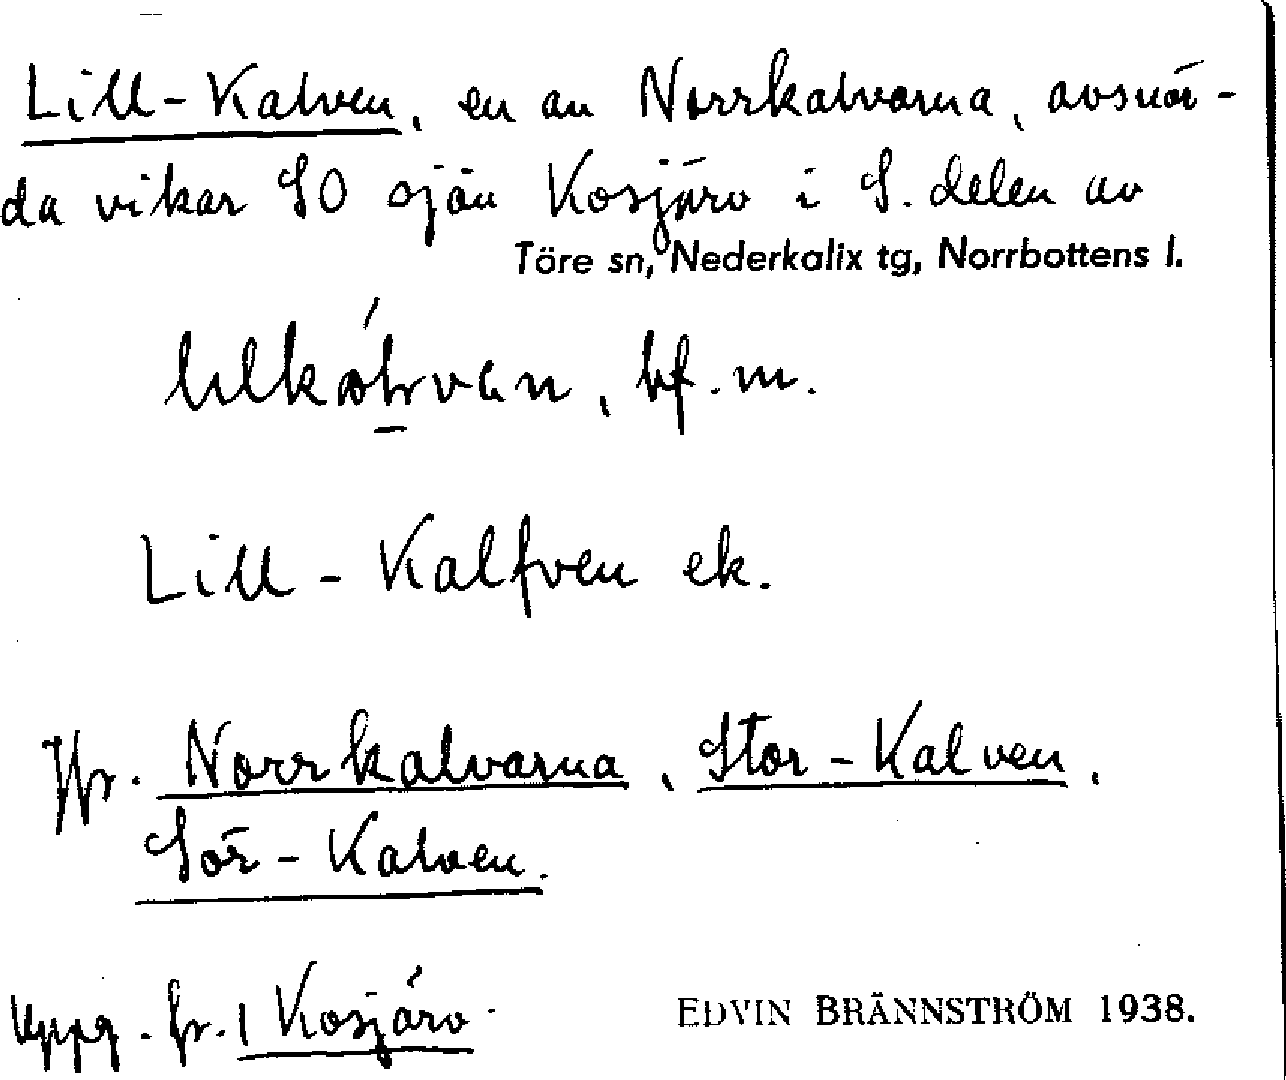 Lill-Kalven, en av Norrkalvarna, avsnör-
da vikar SO sjön Kosjärv i S. delen av
Töre sn, Nederkalix tg, Norrbottens l.
bf. m.
Lill-Kalfven ek.
Jfr. Norrkalvarna, Stor-Kalven,
Sör-Kalven.
Uppg. fr. 1 Kosjärv
EDVIN BRÄNNSTRÖM 1938.